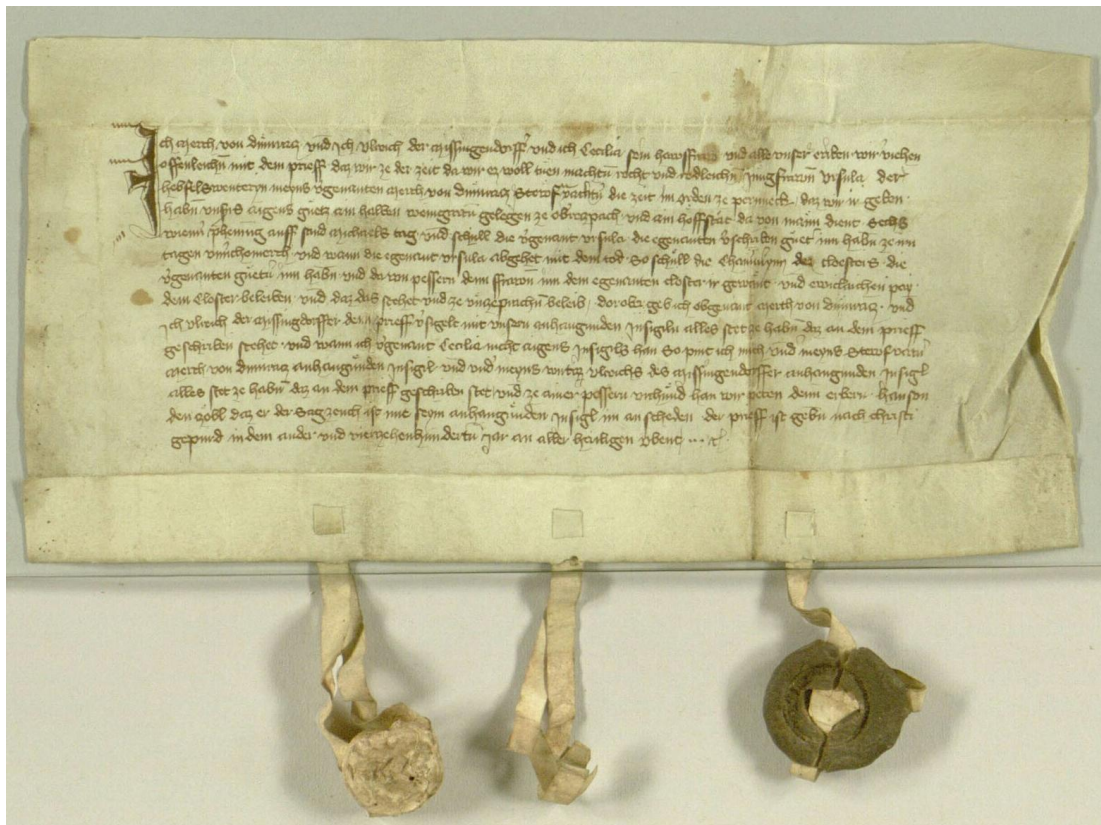 Ich Merth von und ich Ulreich der Missingendorffer und ich Cecilia sein hawsfraw und alle unser erben wir vichen
offenleichn mit dem prieff daz wir ze der zeit da wir ez woll tuen machtn recht und redleichn Jungfrawn Ursula der
meyns vgenanten Merth von die zeit im orden ze pernnekk daz wir ir geben
habn unsers aigens guetz ain halben weingartn gelegen ze obrezpach und ain hoffstat da von main dient Sechs
wienn phennig auff sand Michaels tag und schull die vgenant Ursula die egenanten vschriben guet inn habn ze irn
tagen und wann die egenant Ursula abgehet mit dem tod So schull die des closters die
vgenanten guetn inn habn und da von pessern denn frawn inn dem egenanten closter ir gewant und ewichleichen pey
dem Closter beleiben und daz daz stehet und ze unzeprachn beleib dorober geb ich obgenant Merth von und
ich Ulreich der Missingdorffer den prieff vsigelt mit unsern anhangunden Insigiln alles stet ze habn daz an dem prieff
geschriben stehet und wann ich vgenant Cecilia nicht aigens Insigils han So pint ich mich und meyns
Merth von anhangunden Insigl und meyns wirtz Ulreichs des Missingendorffer anhangunden Insigl
alles stet ze habn daz an dem prieff geschriben stet und ze ainer pessern urchund han wir peten denn erbern hansen
den daz er der Sag zeuch ist mit seym anhangunden Insigl im an scheden der prieff ist gebn nach christi
gepurd in dem ander und vierzehenhundertn Jar an aller heyligen Abent